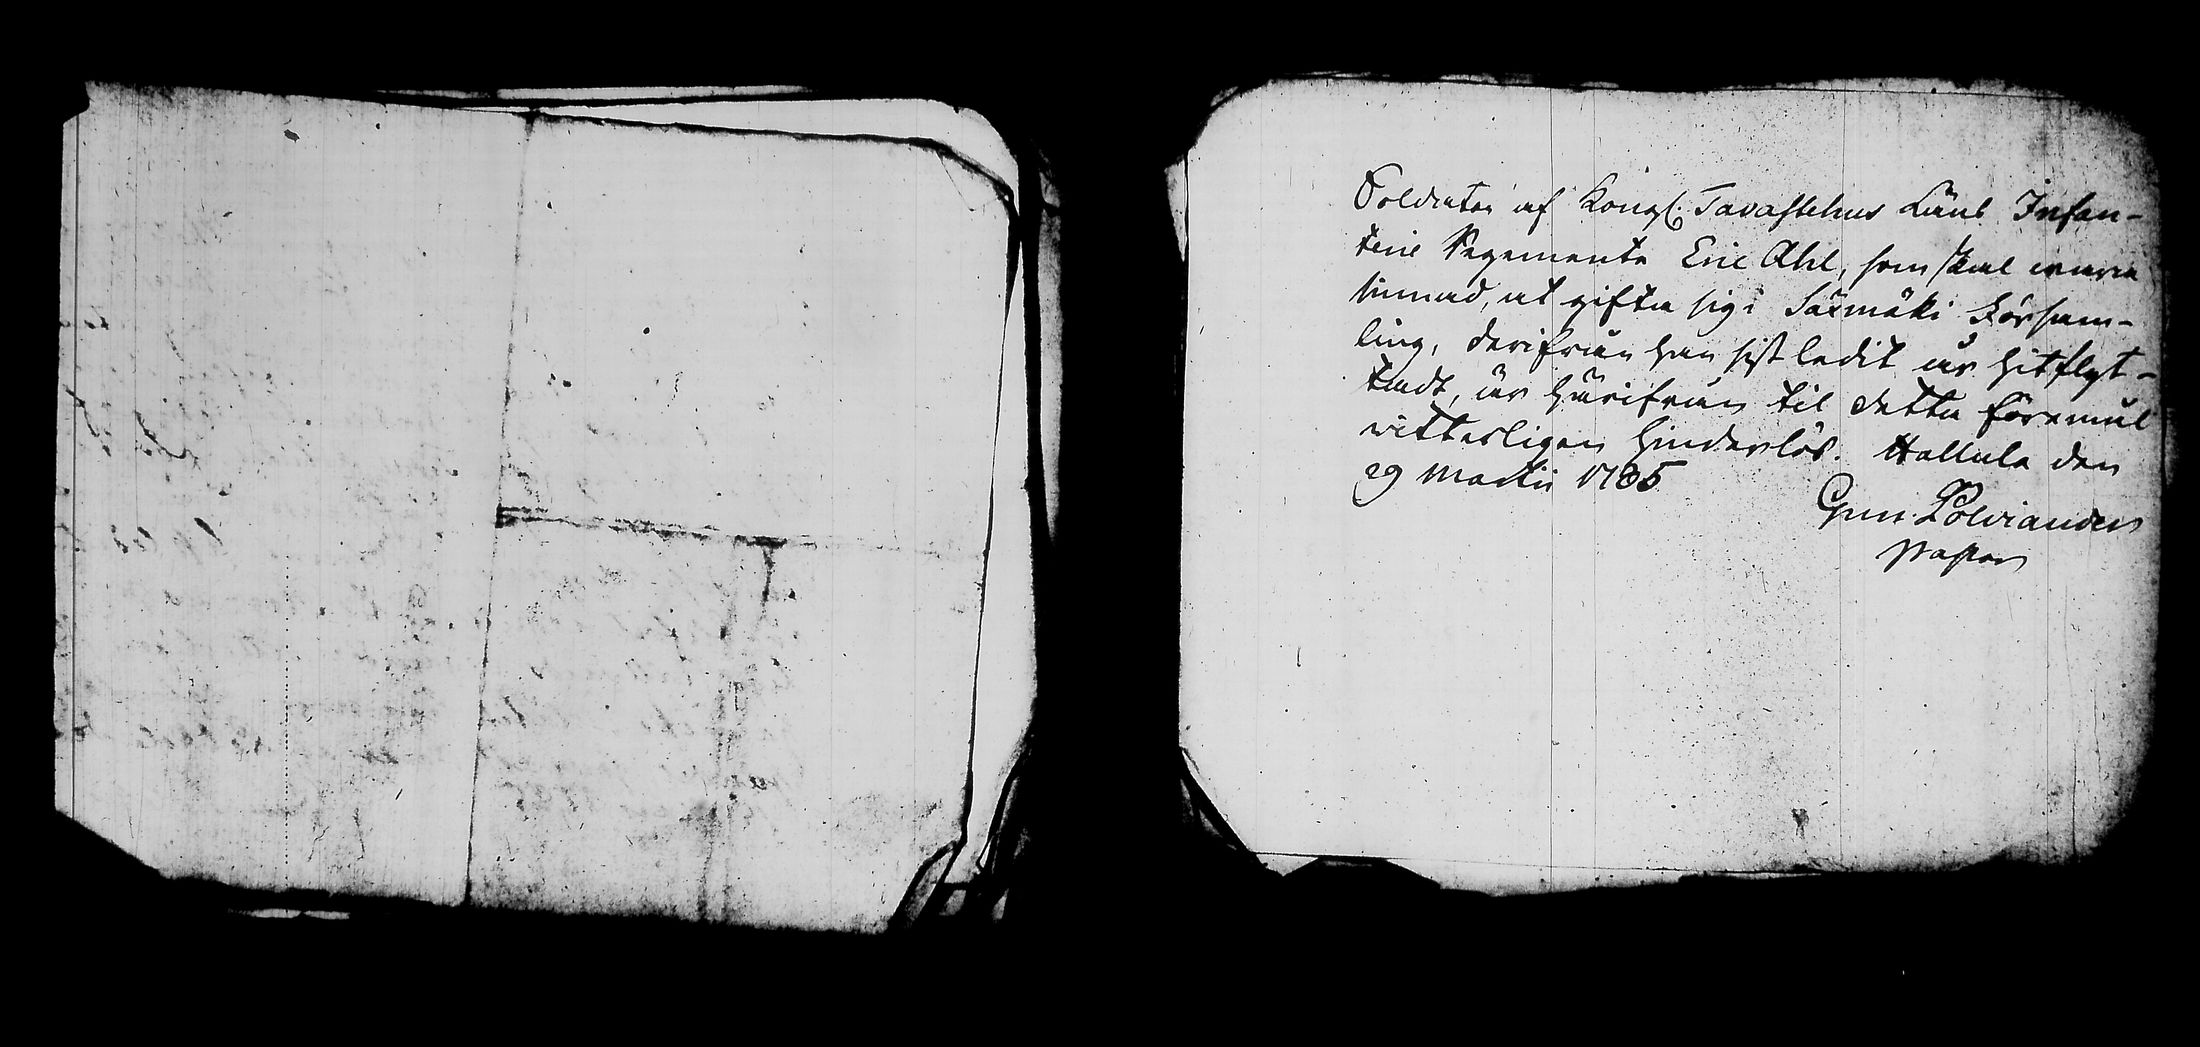 Soldaten af Kongl. Tavastehus Läns Infan-
terie Regemente Eric Ahl, som skal wara
sinnad, at gifta sig i Säxmäki Försam-
ling, derifrån han sist ledit är hitflyt-
tadt, är härifrån til detta föremål
vitterligen hinderlös. Hollola den
29 Martii 1785
Polviander
Pastor